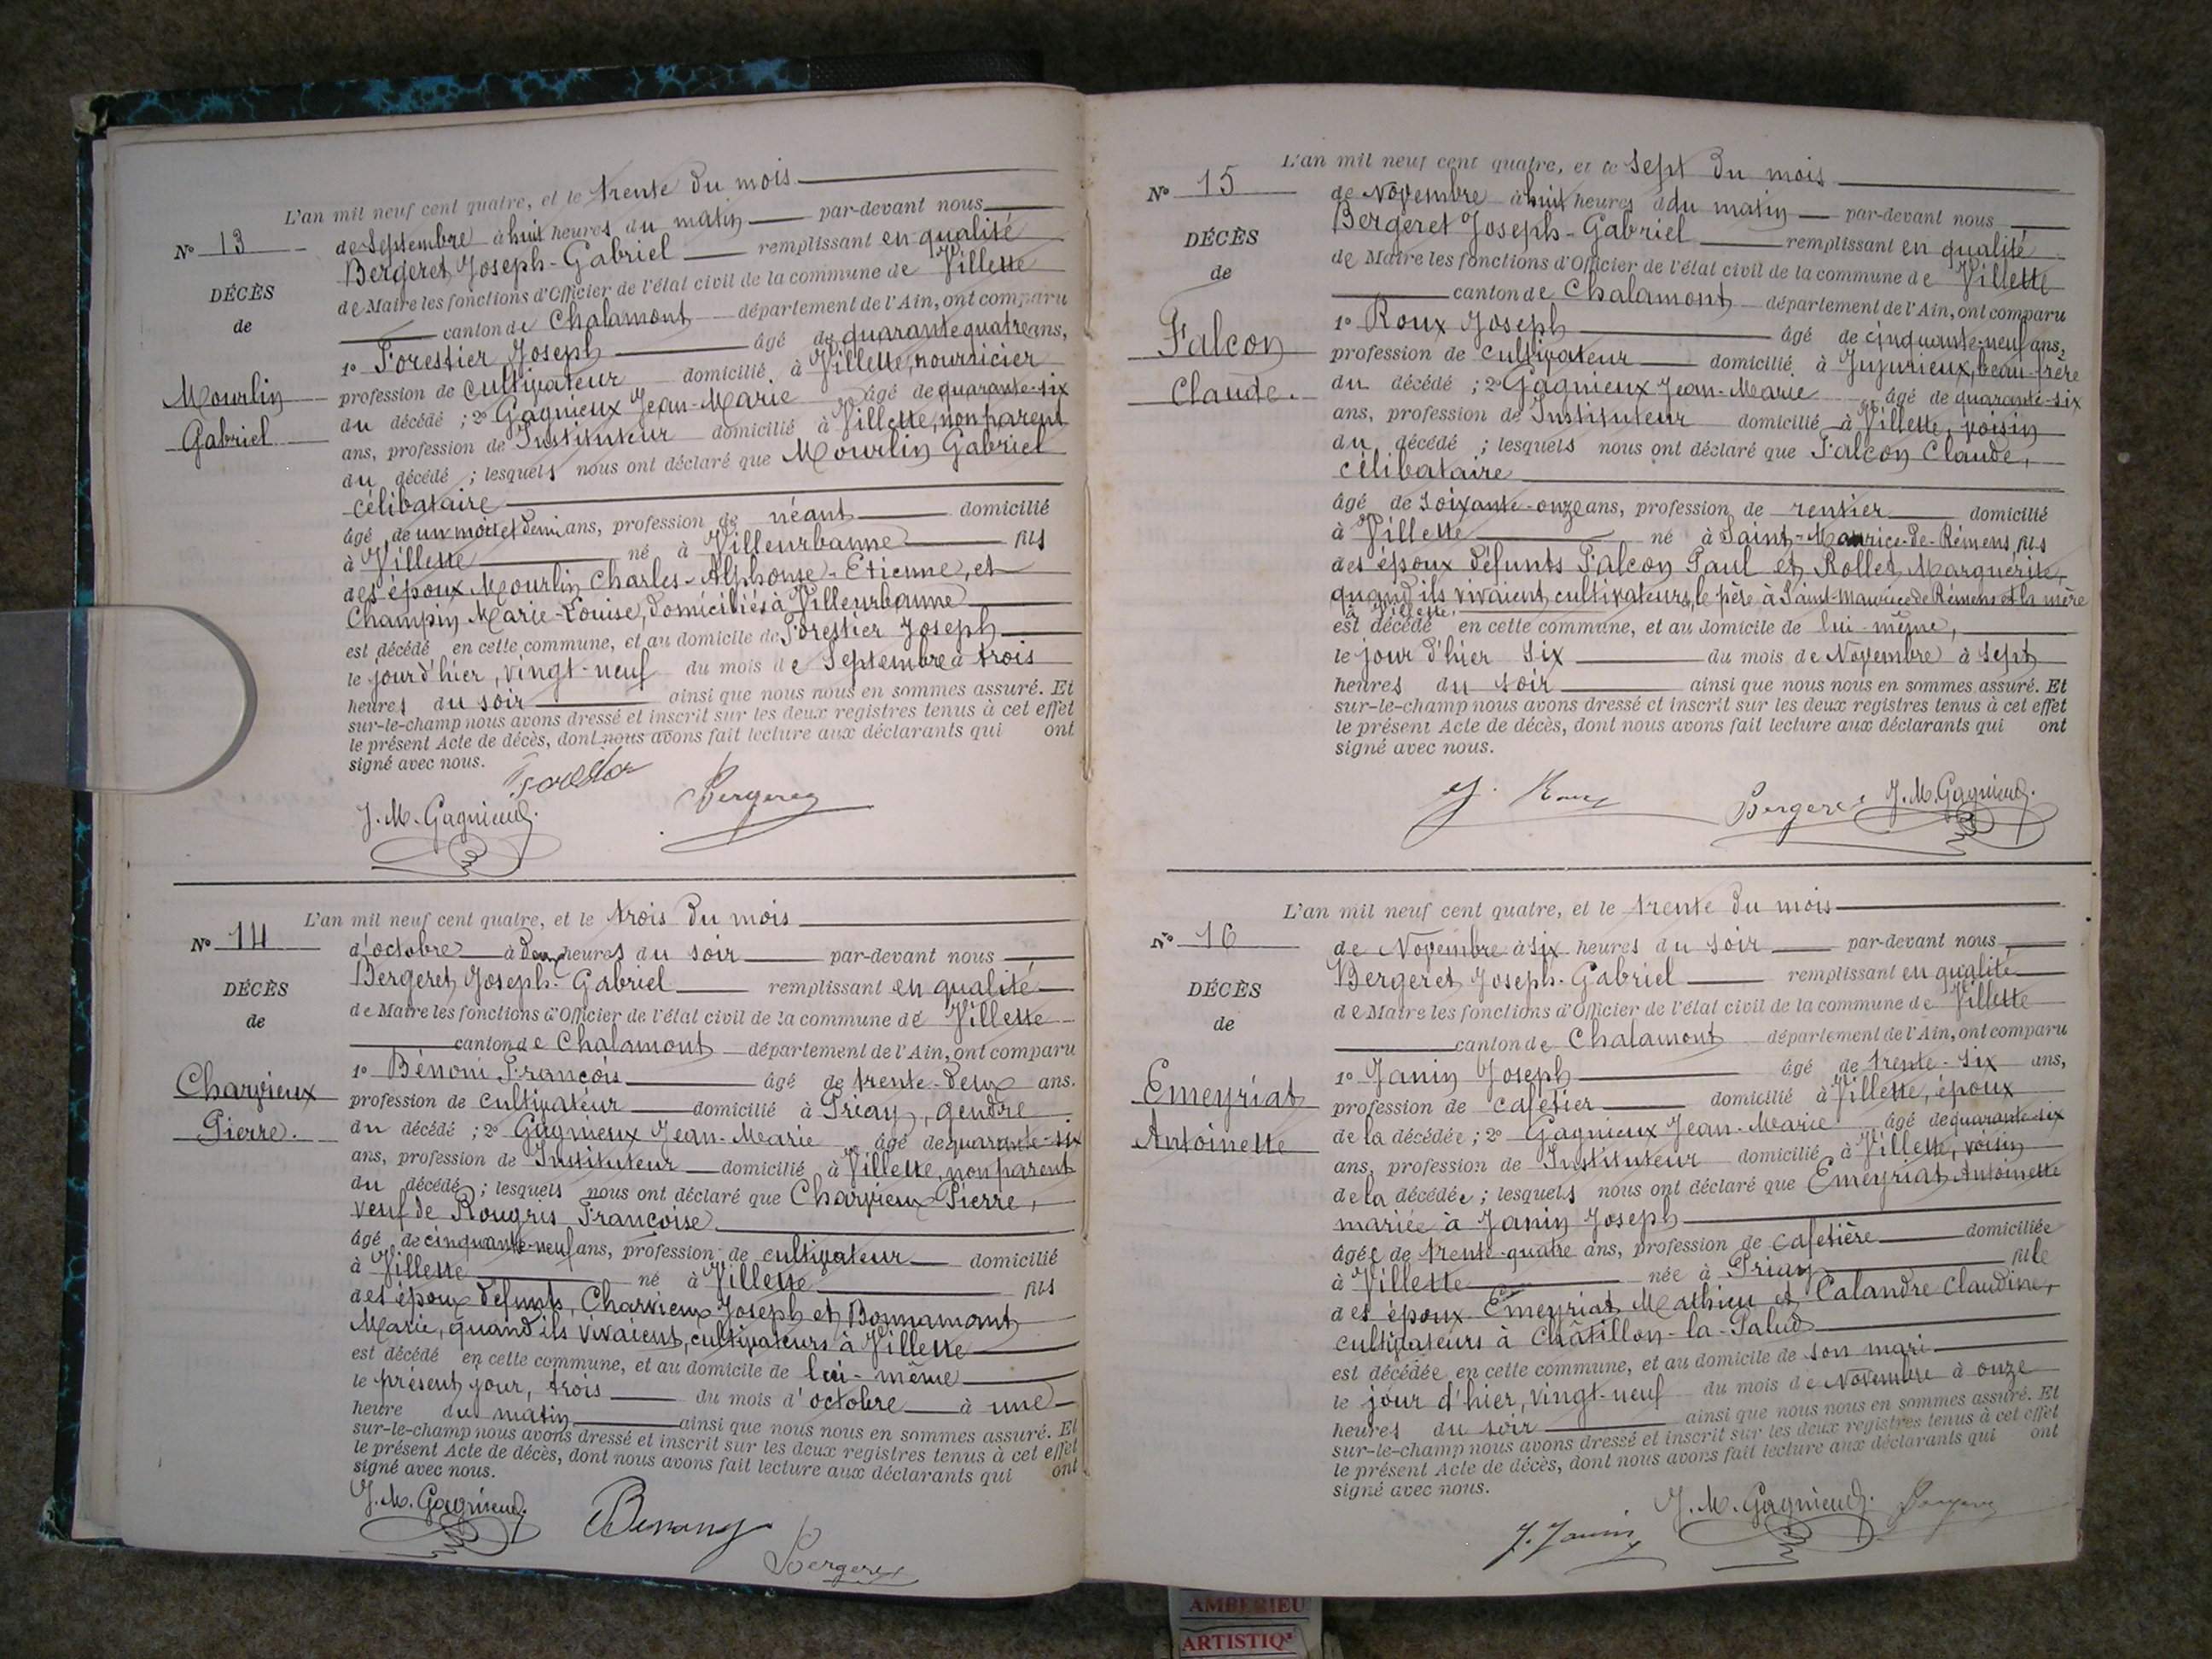 L'an mil neuf cent quatre, et le trente du mois
N° 13
de Septembre à huit heures du matin par-devant nous
Bergeret Joseph-Gabriel remplissant en qualité
DÉCÈS
de Maire les fonctions d'Officier de l'état civil de la commune de Villette
de
canton de Chalamont département de l'Ain, ont comparu
1° Forestier Joseph âgé de quarante quatre ans,
Mourlin
profession de cultivateur domicilié à Villette, nourricier
Gabriel
du décédé ; 2° Gagnieux Jean-Marie âgé de quarante-six
ans, profession de Instituteur domicilié à Villette, non parent
du décédé ; lesquels nous ont déclaré que Mourlin Gabriel
célibataire
âgé de un mois et demi ans, profession de néant domicilié
à Villette né à Villeurbanne fils
des époux Mourlin Charles-Alphonse-Etienne, et
Champin Marie-Louise, domiciliés à Villeurbanne
est décédé en cette commune, et au domicile de Forestier Joseph
le jour d'hier, vingt-neuf du mois de Septembre à trois
heures du soir ainsi que nous nous en sommes assuré. Et
sur-le-champ nous avons dressé et inscrit sur les deux registres tenus à cet effet
le présent Acte de décès, dont nous avons fait lecture aux déclarants qui ont
signé avec nous.
J. M. Gagnieux. Bergeret
L'an mil neuf cent quatre, et le trois du mois
N° 14
d'octobre à deux heures du soir par-devant nous
Bergeret Joseph-Gabriel remplissant en qualité
DÉCÈS
de Maire les fonctions d'Officier de l'état civil de la commune de Villette
de
canton de Chalamont département de l'Ain, ont comparu
1° Bénoni François âgé de trente-deux ans.
Charvieux
profession de cultivateur domicilié à Priay, gendre
Pierre.
du décédé ; 2° Gagnieux Jean-Marie âgé de quarante-six
ans, profession de Instituteur domicilié à Villette, non parent
du décédé ; lesquels nous ont déclaré que Charvieux Pierre,
veuf de Rougris Françoise
âgé de cinquante-neuf ans, profession de cultivateur domicilié
à Villette né à Villette fils
des époux défunts, Charvieux Joseph et Bonnamant
Marie, quand ils vivaient, cultivateurs à Villette
est décédé en cette commune, et au domicile de lui-même
le présent jour, trois du mois d'octobre à une
heure du matin ainsi que nous nous en sommes assuré. Et
sur-le-champ nous avons dressé et inscrit sur les deux registres tenus à cet effet
le présent Acte de décès, dont nous avons fait lecture aux déclarants qui ont
signé avec nous.
J. M. Gagnieux.
Bergeret
L'an mil neuf cent quatre, et le sept du mois
N° 15
de Novembre à huit heures du matin par-devant nous
Bergeret Joseph-Gabriel remplissant en qualité
DÉCÈS
de Maire les fonctions d'Officier de l'état civil de la commune de Villette
de
canton de Chalamont département de l'Ain, ont comparu
1° Roux Joseph âgé de cinquante-neuf ans,
Falcon
profession de cultivateur domicilié à Jujurieux, beau-frère
Claude.
du décédé ; 2° Gagnieux Jean-Marie âgé de quarante-six
ans, profession de Instituteur domicilié à Villette, voisin
du décédé ; lesquels nous ont déclaré que Falcon Claude,
célibataire
âgé de soixante-onze ans, profession de rentier domicilié
à Villette né à Saint-Maurice-de-Rémens, fils
des époux défunts Falcon Paul et Rollet Marguerite,
quand ils vivaient, cultivateurs, le père à Saint-Maurice de Rémens et la mère
à Villette.
est décédé en cette commune, et au domicile de lui-même,
le jour d'hier six du mois de Novembre à sept
heures du soir ainsi que nous nous en sommes assuré. Et
sur-le-champ nous avons dressé et inscrit sur les deux registres tenus à cet effet
le présent Acte de décès, dont nous avons fait lecture aux déclarants qui ont
signé avec nous.
J. Roux Bergeret J. M. Gagnieux.
L'an mil neuf cent quatre, et le trente du mois
N° 16
de Novembre à six heures du soir par-devant nous
Bergeret Joseph-Gabriel remplissant en qualité
DÉCÈS
de Maire les fonctions d'Officier de l'état civil de la commune de Villette
de
canton de Chalamont département de l'Ain, ont comparu
1° Janin Joseph âgé de trente-six ans,
Emeyriat
profession de cafetier domicilié à Villette, époux
Antoinette
de la décédée ; 2° Gagnieux Jean-Marie âgé de quarante-six
ans, profession de Instituteur domicilié à Villette, voisin
de la décédée ; lesquels nous ont déclaré que Emeyriat Antoinette
mariée à Janin Joseph
âgée de trente-quatre ans, profession de cafetière domiciliée
à Villette née à Priay fille
des époux Emeyriat Mathieu et Calandre Claudine,
cultivateurs à Châtillon-la-Palud
est décédée en cette commune, et au domicile de son mari
le jour d'hier, vingt-neuf du mois de Novembre à onze
heures du soir ainsi que nous nous en sommes assuré. Et
sur-le-champ nous avons dressé et inscrit sur les deux registres tenus à cet effet
le présent Acte de décès, dont nous avons fait lecture aux déclarants qui ont
signé avec nous.
J. Janin J. M. Gagnieux. Bergeret
AMBERIEU
ARTISTIQ